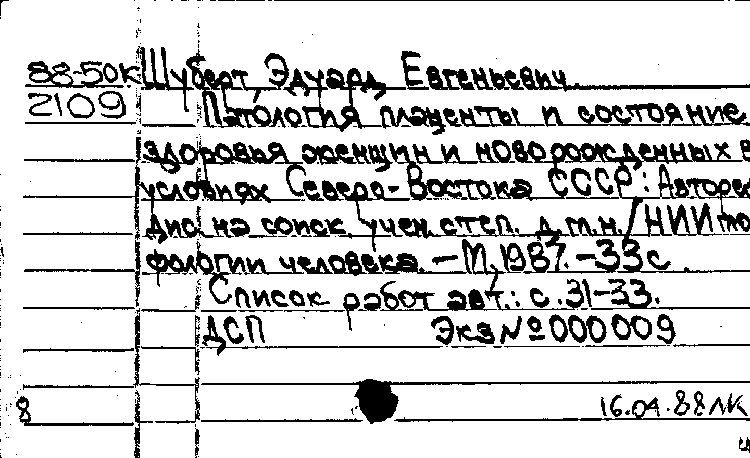 88-50К Шуберт, Эдуард Евгеньевич.
2109 Патология плаценты и состояние
здоровья женщин и новорожденных в
условиях Северо-Востока СССР: Авторе
дис. на соиск. учен. степ. д.м.н. / НИИ мо
фологии человека. - М, 1987. - 33 с.
Список работ авт.: с. 31-33.
ДСП Экз № 000009
8 16.04.88 ЛК